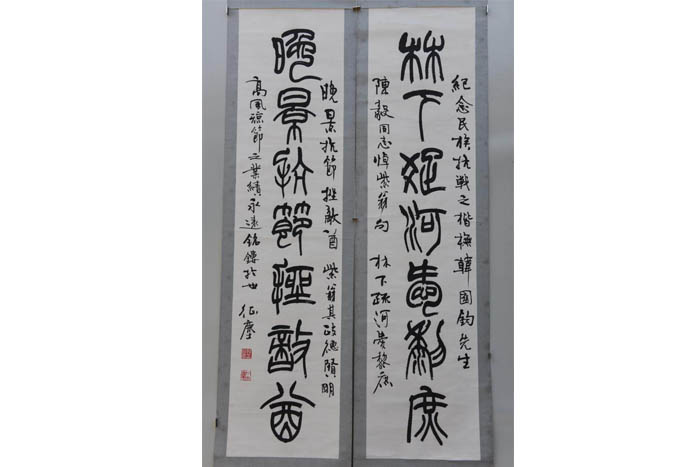 紀念民族抗戰之楷模韓國鈞先生
林下疏河惠黎庶
陳毅同志悼紫翁句 林下疏河惠黎庶
晚景抗節挫敵酋 紫翁其政德賢明
晚景抗節挫敵酋
高風諒節之業績永遠銘鏤於世 征塵